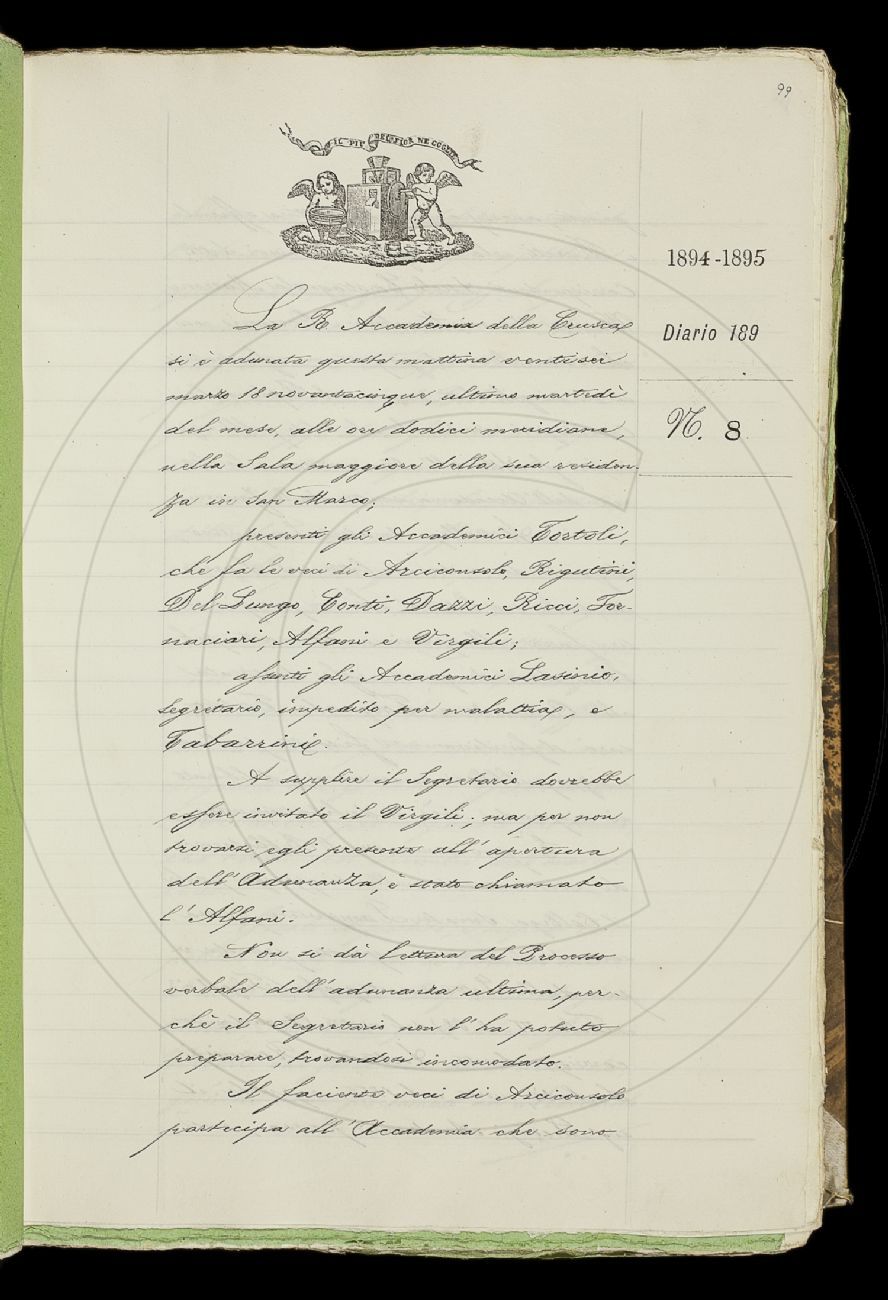 99
IL PIÙ BEL FIOR NE COGLIE
1894-1895
Diario 189
N. 8
La R. Accademia della Crusca
si è adunata questa mattina ventisei
marzo 18novantacinque, ultimo martedì
del mese, alle ore dodici meridiane,
nella Sala maggiore della sua residen-
za in San Marco;
presenti gli Accademici Tortoli,
che fa le veci di Arciconsolo, Rigutini,
Del Lungo, Conti, Dazzi, Ricci, For-
naciari, Alfani e Virgili;
assenti gli Accademici Lasinio,
Segretario, impedito per malattia, e
Tabarrini.
A supplire il Segretario dovrebbe
essere invitato il Virgili; ma per non
trovarsi egli presente all'apertura
dell'Adunanza, è stato chiamato
l'Alfani.
Non si dà lettura del Processo
verbale dell'adunanza ultima, per-
chè il Segretario non l'ha potuto
preparare, trovandosi incomodato.
Il facente veci di Arciconsolo
partecipa all'Accademia che sono